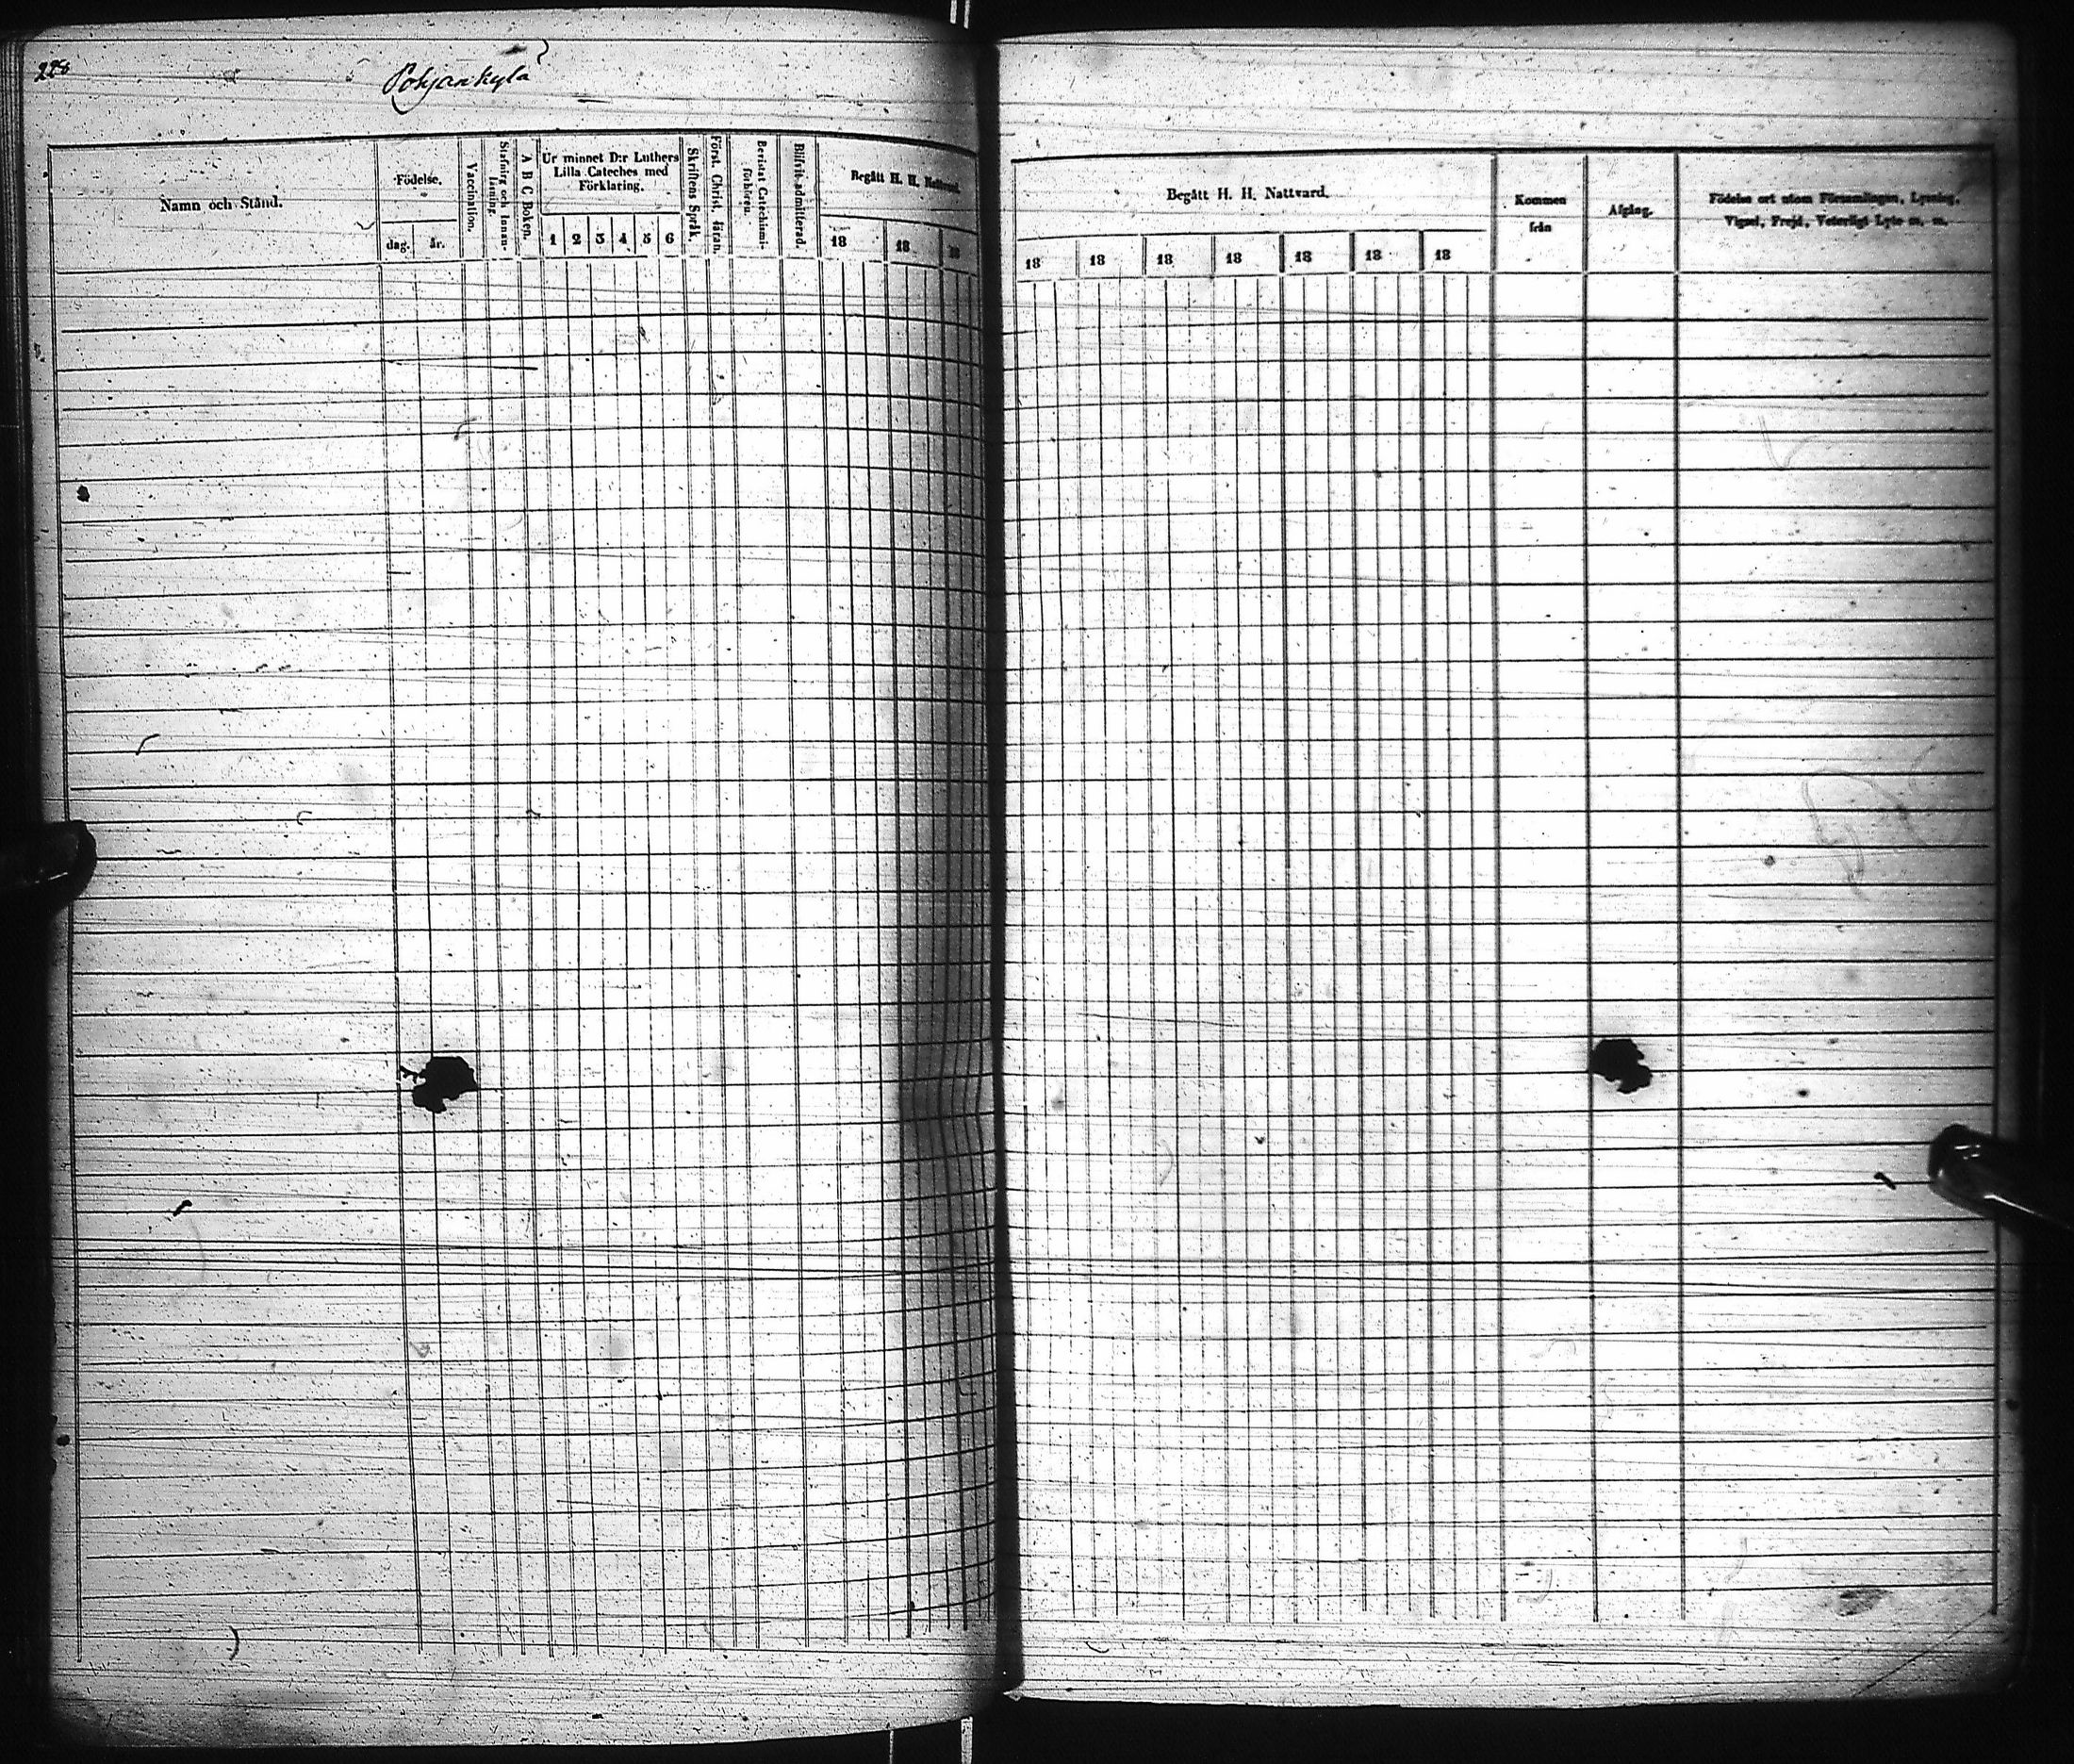 228
Pohjankylä
Namn och Stånd.
Födelse.
dag. år.
Vaccination.
Stafning och Innan-
läsning.
A B C Boken.
Ur minnet D:r Luthers
Lilla Cateches med
Förklaring.
1 2 3 4 5 6
Skriftens Språk.
Först. Christ. läran.
Bevistat Catechismi-
förhören.
Blifvit admitterad.
Begått H. H. Nattvard.
18 18 18
Begått H. H. Nattvard.
18 18 18 18 18 18 18
Kommen
från
Afgång.
Födelse ort utom Församlingen, Lysning,
Vigsel, Frejd, Veterligt Lyte m. m.